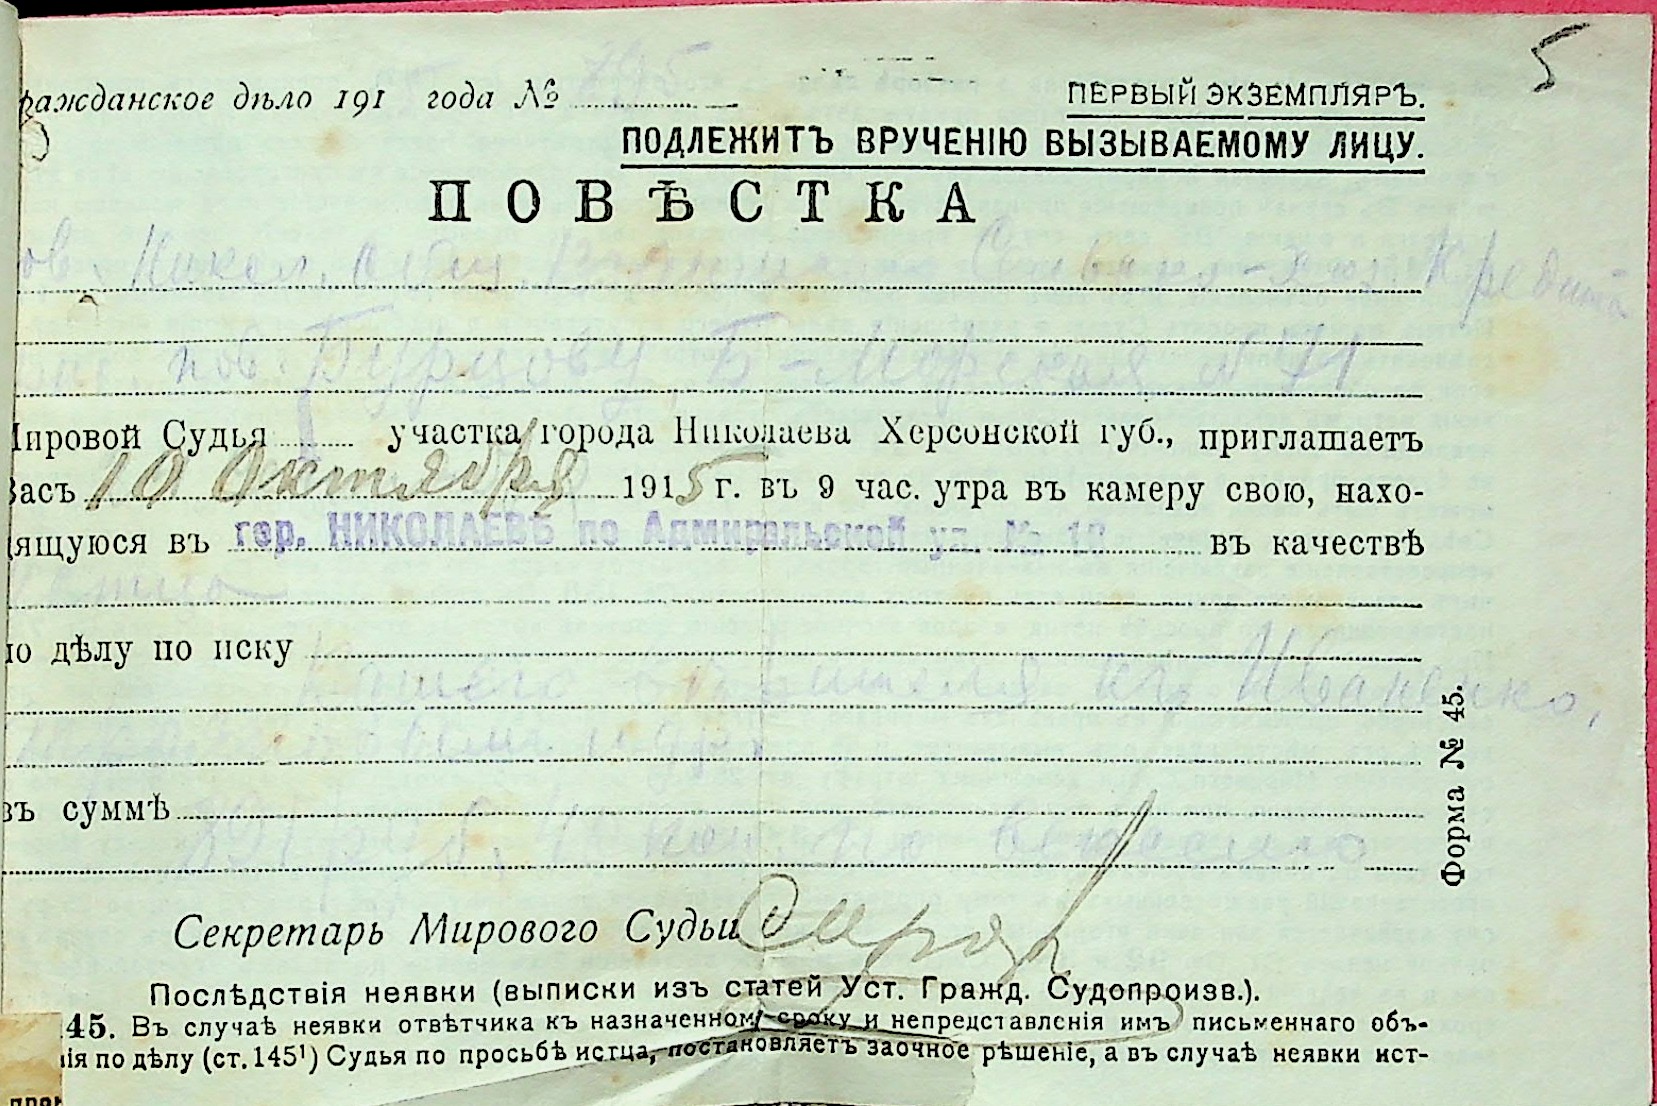 5
ражданское дѣло 191 года № 795
ПЕРВЫЙ ЭКЗЕМПЛЯРЪ.
ПОДЛЕЖИТЪ ВРУЧЕНІЮ ВЫЗЫВАЕМОМУ ЛИЦУ.
ПОВѢСТКА
ов. Никол. Кредита
пов. Бурцову, Б-Морская № 71
Мировой Судья участка города Николаева Херсонской губ., приглашаетъ
Васъ 10 Октября 1915 г. въ 9 час. утра въ камеру свою, нахо-
дящуюся въ гор. НИКОЛАЕВѢ по Адмиральской ул. № въ качествѣ
истца
по дѣлу по иску
Вашего къ Иваненко,
въ суммѣ
коп. по
Секретарь Мирового Судьи
Послѣдствія неявки (выписки изъ статей Уст. Гражд. Судопроизв.).
145. Въ случаѣ неявки отвѣтчика къ назначенному сроку и непредставленія имъ письменнаго объ-
нія по дѣлу (ст. 145¹) Судья по просьбѣ истца, постановляетъ заочное рѣшеніе, а въ случаѣ неявки ист-
Форма № 45.